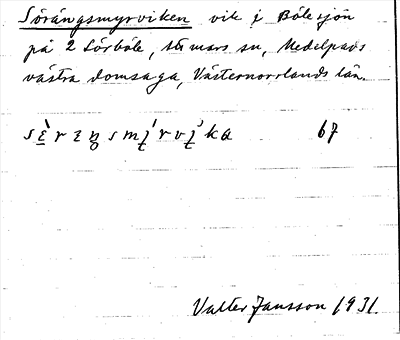 Sörängsmyrviken vik i Bölesjön
på 2 Sörböle, Attmars sn, Medelpads
västra domsaga, Västernorrlands län.
67
Valter Jansson 1931.